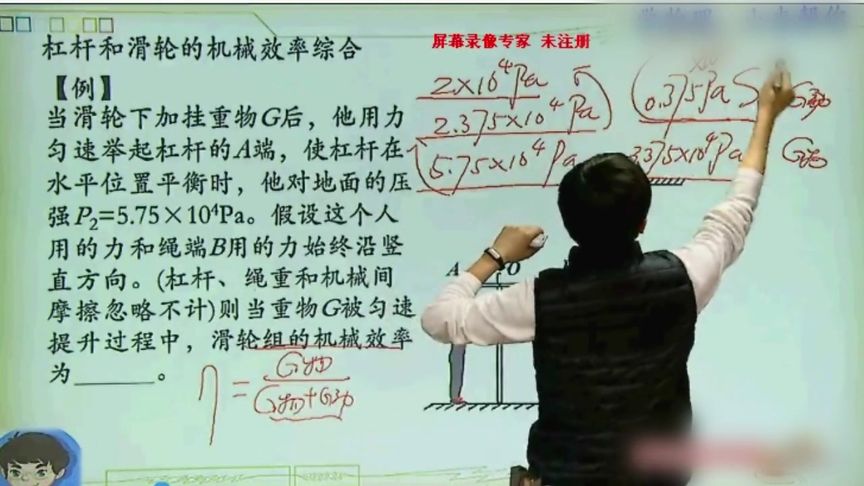 杠杆和滑轮的机械效率综合
屏幕录像专家 未注册
【例】
当滑轮下加挂重物G后，他用力
匀速举起杠杆的A端，使杠杆在
水平位置平衡时，他对地面的压
强P₂=5.75×10⁴Pa。假设这个人
用的力和绳端B用的力始终沿竖
直方向。(杠杆、绳重和机械间
摩擦忽略不计)则当重物G被匀速
提升过程中，滑轮组的机械效率
为______。
η = G物 / G物+G动
2×10⁴Pa
2.375×10⁴Pa
5.75×10⁴Pa
0.375Pa S G动
3.375×10⁴Pa G物
A O